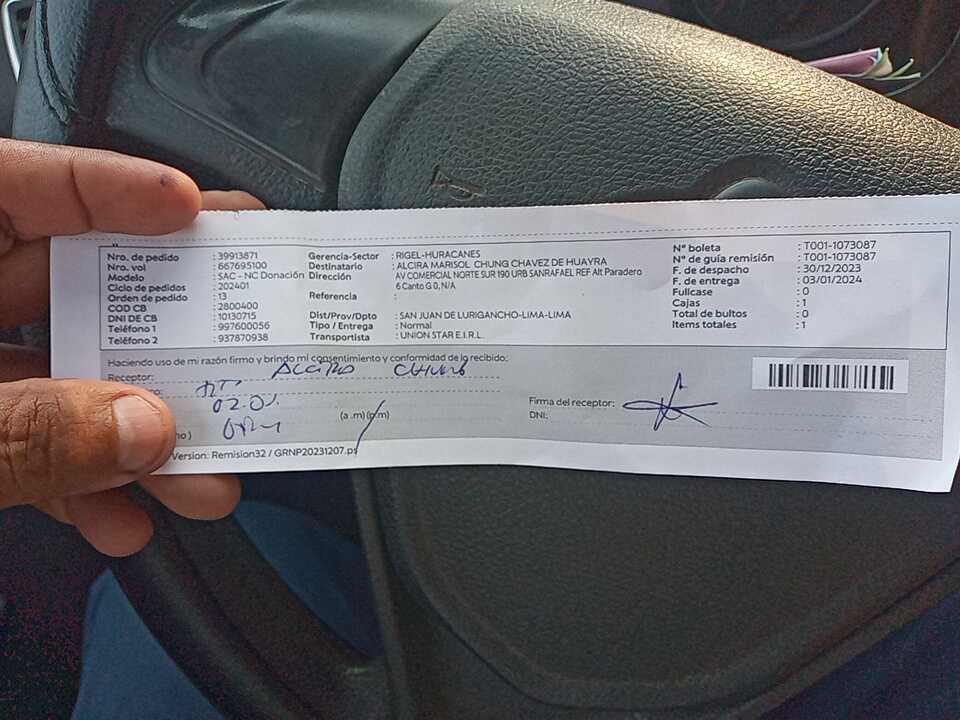 Nro. de pedido : 39913871
Nro. vol : 667695100
Modelo : SAC - NC Donación
Ciclo de pedidos : 202401
Orden de pedido : 13
COD CB : 2800400
DNI DE CB : 10130715
Teléfono 1 : 997600056
Teléfono 2 : 937870938
Gerencia-Sector : RIGEL-HURACANES
Destinatario : ALCIRA MARISOL CHUNG CHAVEZ DE HUAYRA
Dirección : AV COMERCIAL NORTE SUR 190 URB SANRAFAEL REF Alt Paradero
6 Canto G 0, N/A
Referencia :
Dist/Prov/Dpto : SAN JUAN DE LURIGANCHO-LIMA-LIMA
Tipo / Entrega : Normal
Transportista : UNION STAR E.I.R.L.
N° boleta : T001-1073087
N° de guía remisión : T001-1073087
F. de despacho : 30/12/2023
F. de entrega : 03/01/2024
Fullcase : 0
Cajas : 1
Total de bultos : 0
Items totales : 1
Haciendo uso de mi razón firmo y brindo mi consentimiento y conformidad de lo recibido:
Receptor: Chung
(a .m) (p.m)
Firma del receptor:
DNI:
Version: Remision32 / GRNP20231207.ps